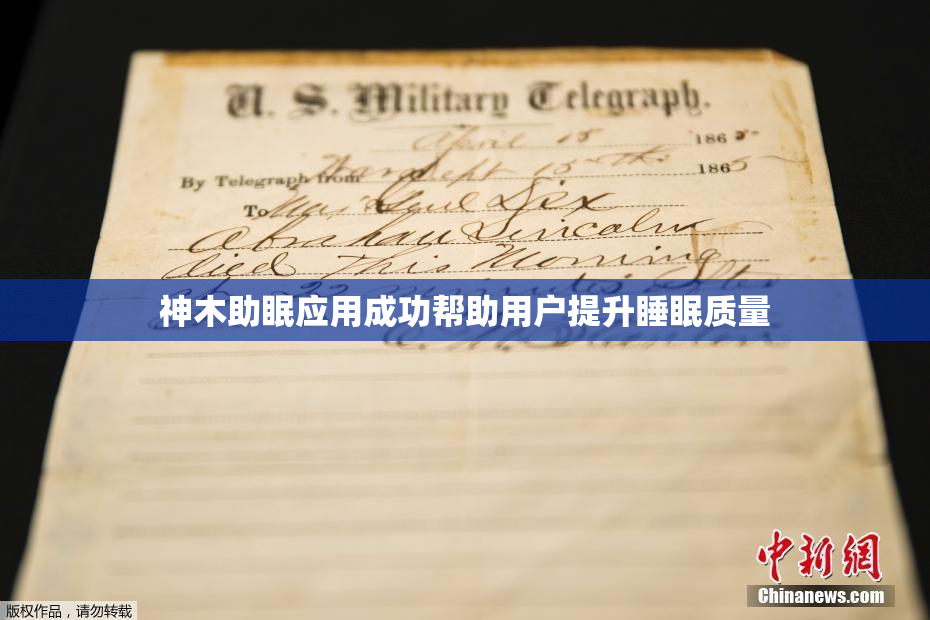 U. S. Military Telegraph.
April 15 1865
By Telegraph from War Dept 15th 1865
To Maj Genl Dix
Abraham Lincoln
died This Morning
at 22 minutes after
神木助眠应用成功帮助用户提升睡眠质量
E. M. Stanton
中新網
Chinanews.com
版权作品，请勿转载